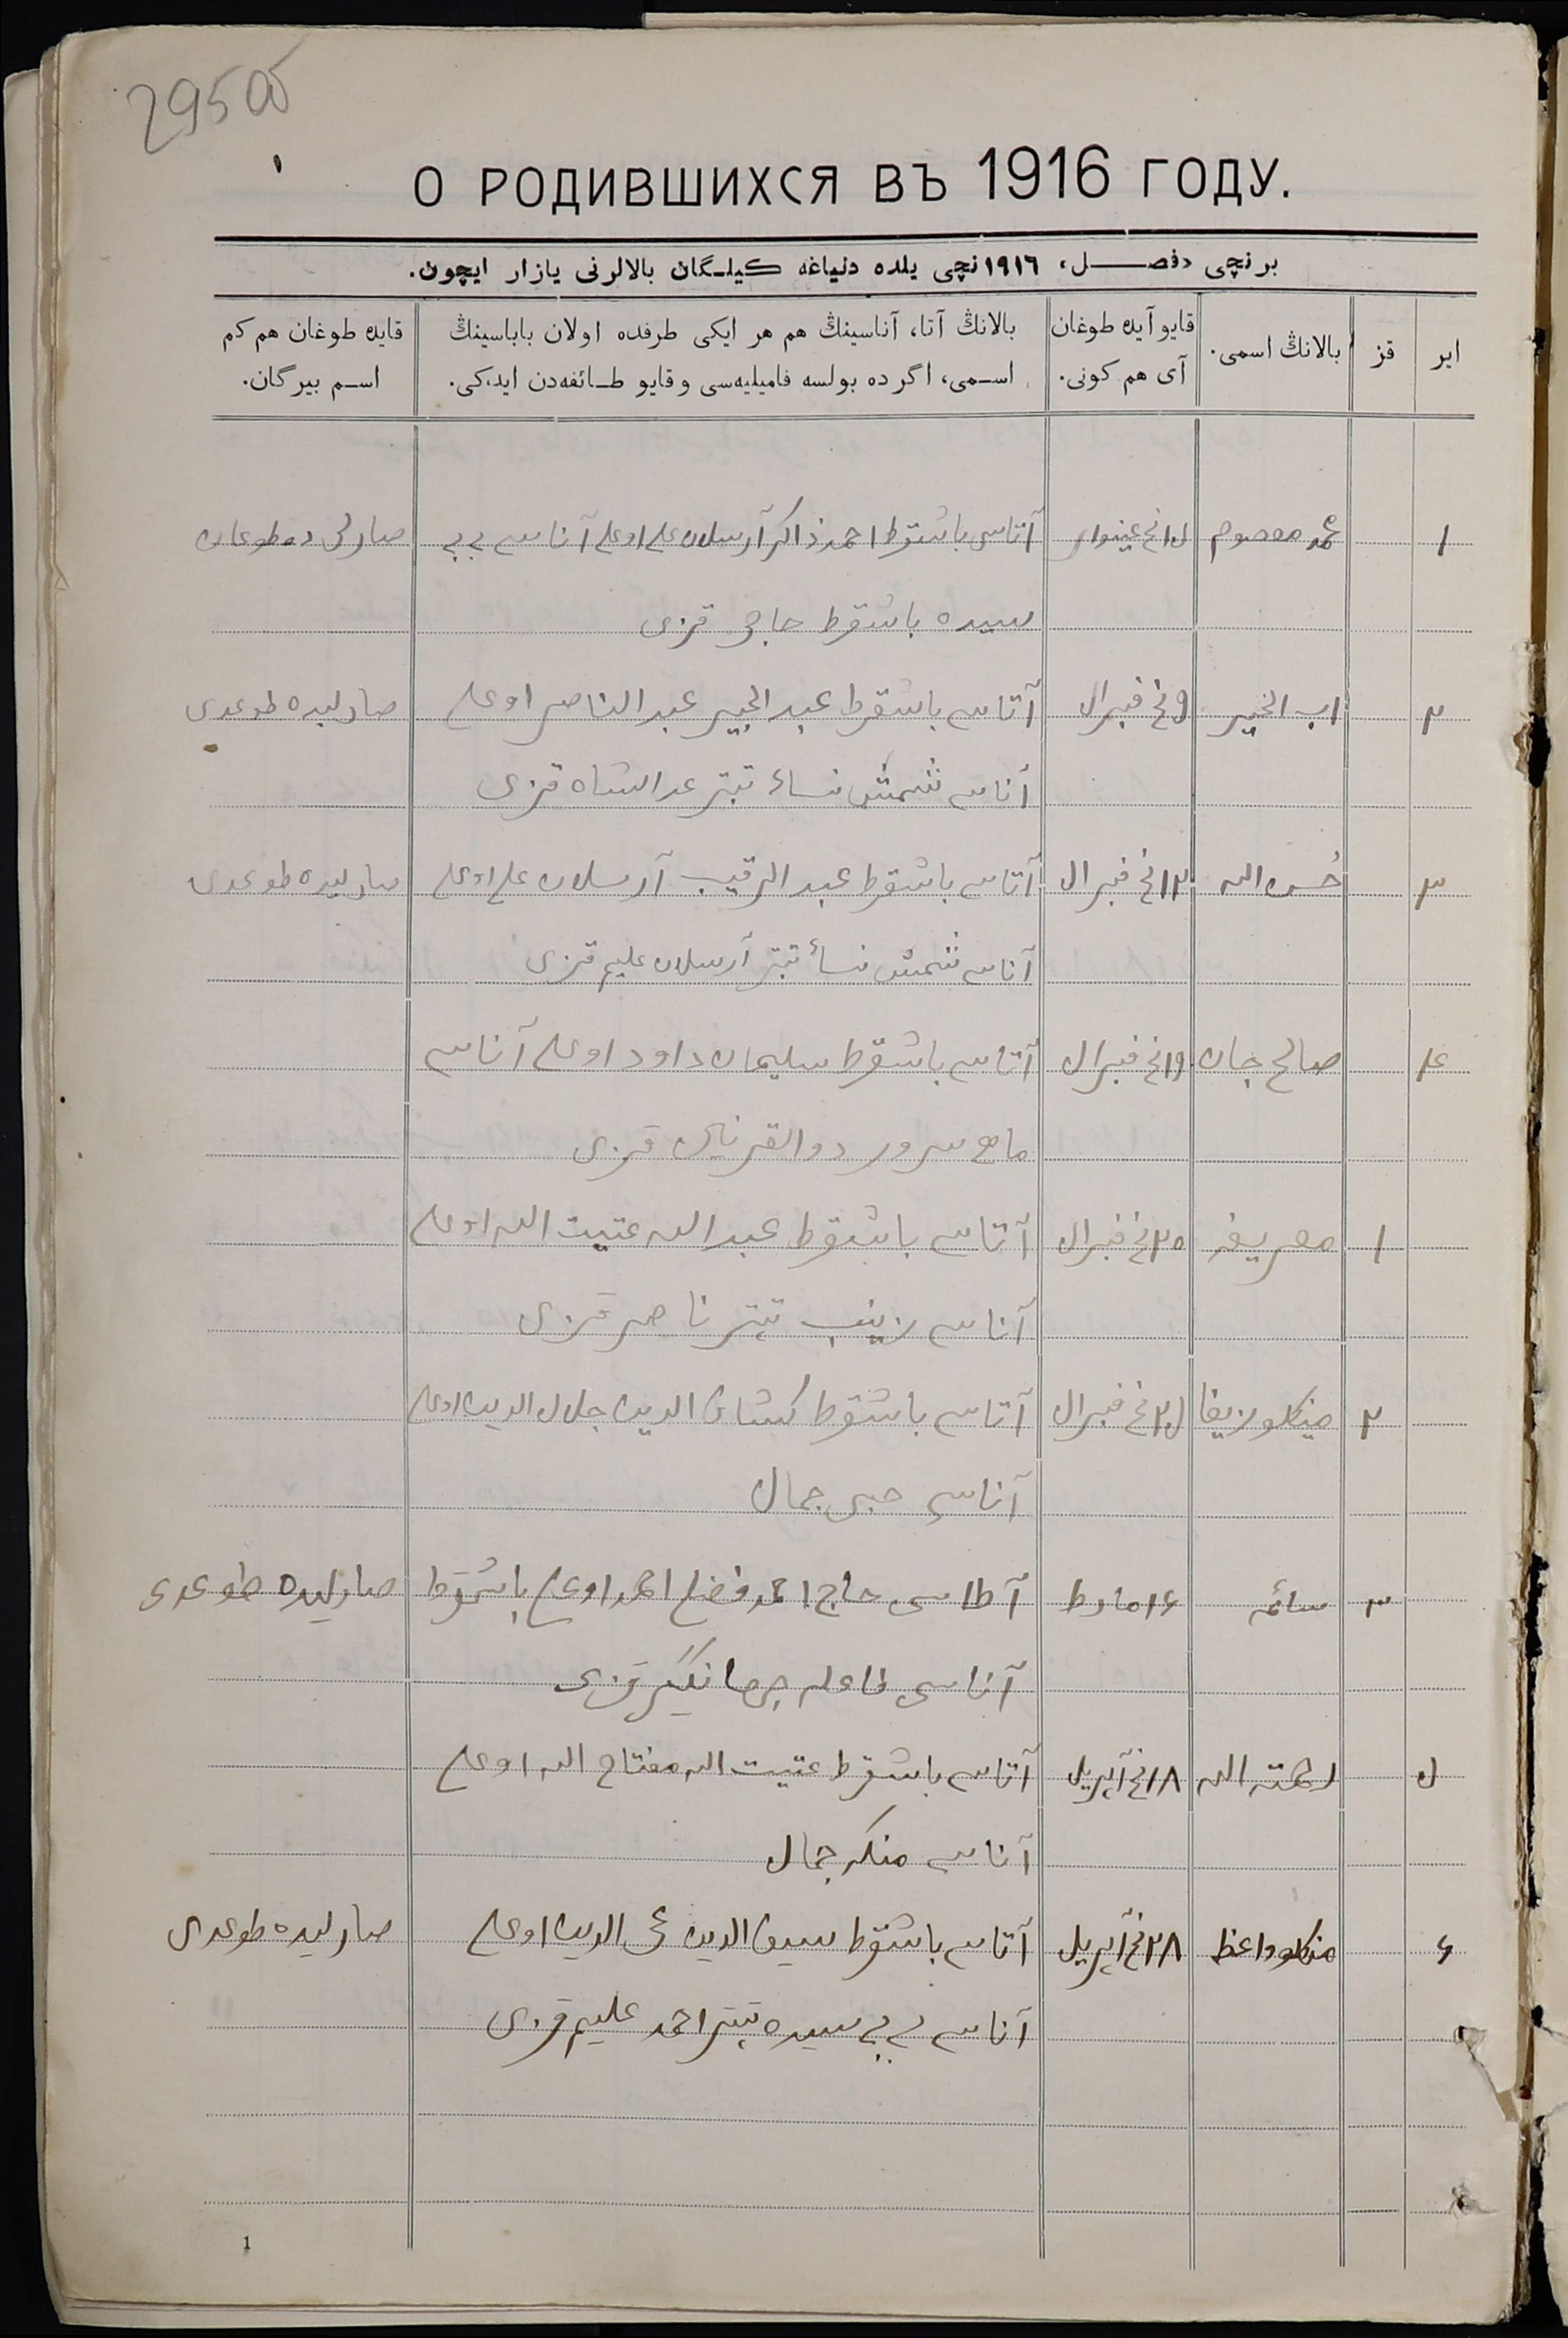 295 об
О РОДИВШИХСЯ ВЪ 1916 ГОДУ.
برنچی «فصـــل» ١٩١٦نچی یلده دنیاغه کیلـگان بالالرنی یازار ایچون.
ایر
قز
بالانڭ اسمی.
قایو آیده طوغان
آی هم کونی.
بالانڭ آتا، آناسینڭ هم هر ایکی طرفده اولان باباسینڭ
اسـمی، اگرده بولسه فامیلیه‌سی و قایو طـائفه‌دن ایدکی.
قایده طوغان هم کم
اسـم بیرگان.
١ محمد معصوم غینوار آتاسی باشقرط احمد ذاکر آرسلان علی اوغلی آناسی بی بی
سیده باشقرط حاجی قزی
٢ اب الخیر ٩نچی فبرال آتاسی باشقرط عبد الجبیر عبد الناصر اوغلی صارلیده طوغدی
آناسی شمش نساء تبتر قزی
٣ حسن الله ١٢نچی فبرال آتاسی باشقرط عبد الرقیب آرسلان علی اوغلی صارلیده طوغدی
آناسی شمش نساء تبتر آرسلان علیم قزی
٤ صالح جان ١٩نچی فبرال آتاسی باشقرط سلیمان داود اوغلی آناسی
ماه سرور ذوالقرنین قزی
١ معریفه ٢٥نچی فبرال آتاسی باشقرط عبد الله عتیت الله اوغلی
آناسی زینب تبتر ناصر قزی
٢ مینکلو زیفا فبرال آتاسی باشقرط کشاف الدین جلال الدین اوغلی
آناسی حبی جمال
٣ سائمه ١٦ مارط آطاسی حاج احمد فضل احمد اوغلی باشقرط صارلیده طوغدی
آناسی جهانگیر قزی
٥ رحمة الله ١٨نچی آپریل آتاسی باشقرط عتیت الله مفتاح الله اوغلی
آناسی منکه جمال
٦ منکلو واعظ ٢٨نچی آپریل آتاسی باشقرط سیف الدین محی الدین اوغلی صارلیده طوغدی
آناسی بی بی سیده تپتر احمد علیم قزی
1